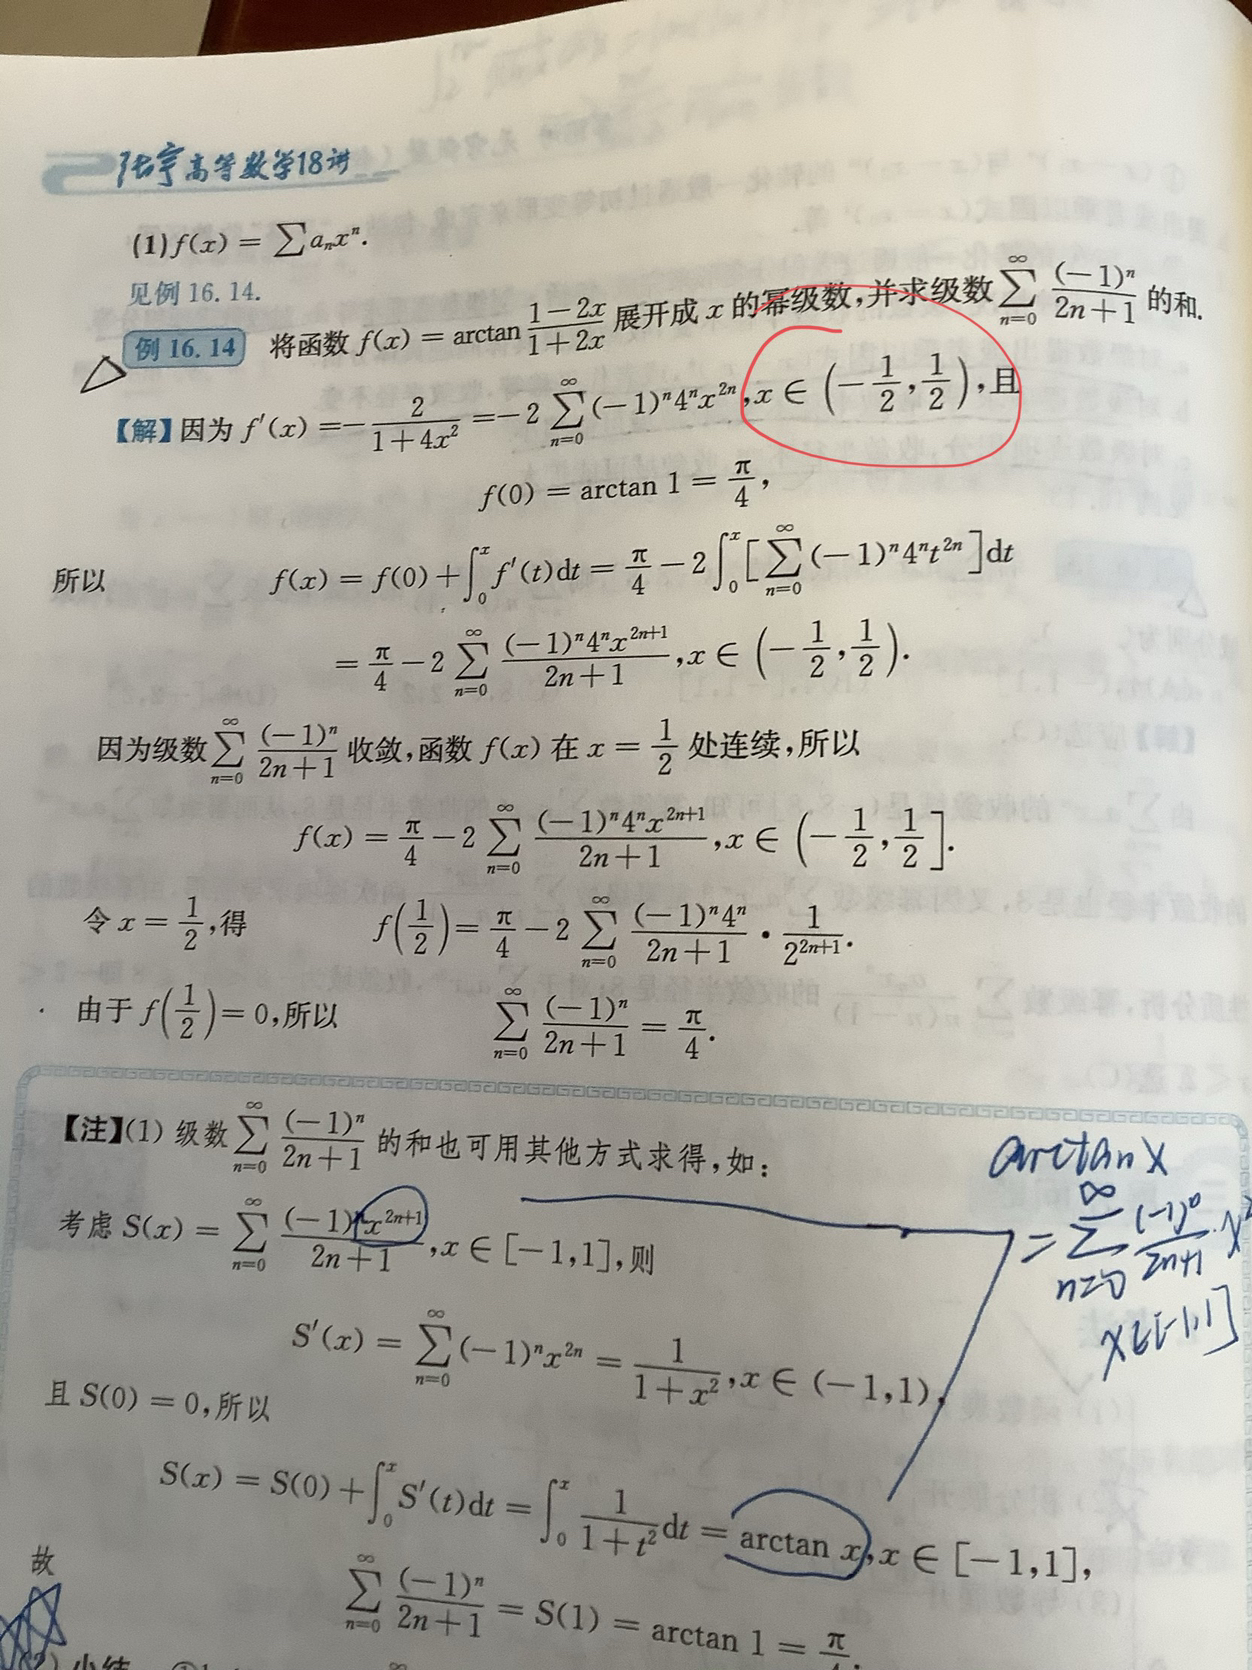 张宇高等数学18讲
(1) f(x) = ∑ aₙxⁿ.
见例 16.14.
例 16.14 将函数 f(x) = arctan (1−2x)/(1+2x) 展开成 x 的幂级数,并求级数 ∑_{n=0}^{∞} (−1)ⁿ/(2n+1) 的和.
【解】因为 f′(x) = −2/(1+4x²) = −2 ∑_{n=0}^{∞} (−1)ⁿ4ⁿx²ⁿ, x ∈ (−1/2, 1/2), 且
f(0) = arctan 1 = π/4,
所以 f(x) = f(0) + ∫₀ˣ f′(t)dt = π/4 − 2∫₀ˣ [∑_{n=0}^{∞} (−1)ⁿ4ⁿt²ⁿ]dt
= π/4 − 2 ∑_{n=0}^{∞} (−1)ⁿ4ⁿx²ⁿ⁺¹/(2n+1), x ∈ (−1/2, 1/2).
因为级数 ∑_{n=0}^{∞} (−1)ⁿ/(2n+1) 收敛,函数 f(x) 在 x = 1/2 处连续,所以
f(x) = π/4 − 2 ∑_{n=0}^{∞} (−1)ⁿ4ⁿx²ⁿ⁺¹/(2n+1), x ∈ (−1/2, 1/2].
令 x = 1/2, 得 f(1/2) = π/4 − 2 ∑_{n=0}^{∞} (−1)ⁿ4ⁿ/(2n+1) · 1/2²ⁿ⁺¹.
由于 f(1/2) = 0, 所以 ∑_{n=0}^{∞} (−1)ⁿ/(2n+1) = π/4.
【注】(1) 级数 ∑_{n=0}^{∞} (−1)ⁿ/(2n+1) 的和也可用其他方式求得,如:
考虑 S(x) = ∑_{n=0}^{∞} (−1)ⁿx²ⁿ⁺¹/(2n+1), x ∈ [−1,1], 则
arctan x
= ∑_{n=0}^{∞} (−1)ⁿ/(2n+1) · x
x∈[−1,1]
S′(x) = ∑_{n=0}^{∞} (−1)ⁿx²ⁿ = 1/(1+x²), x ∈ (−1,1),
且 S(0) = 0, 所以
S(x) = S(0) + ∫₀ˣ S′(t)dt = ∫₀ˣ 1/(1+t²) dt = arctan x, x ∈ [−1,1],
故 ∑_{n=0}^{∞} (−1)ⁿ/(2n+1) = S(1) = arctan 1 = π/4.
(2) 小结